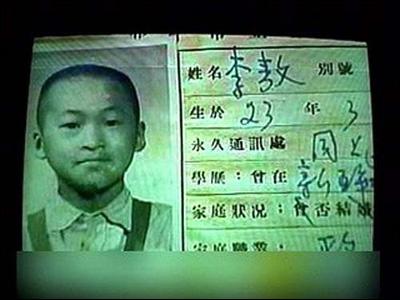 姓名 李敖 別號
生於 23 年 3
永久通訊處
學歷：曾在 新
家庭狀况：曾否結婚
家庭職業：